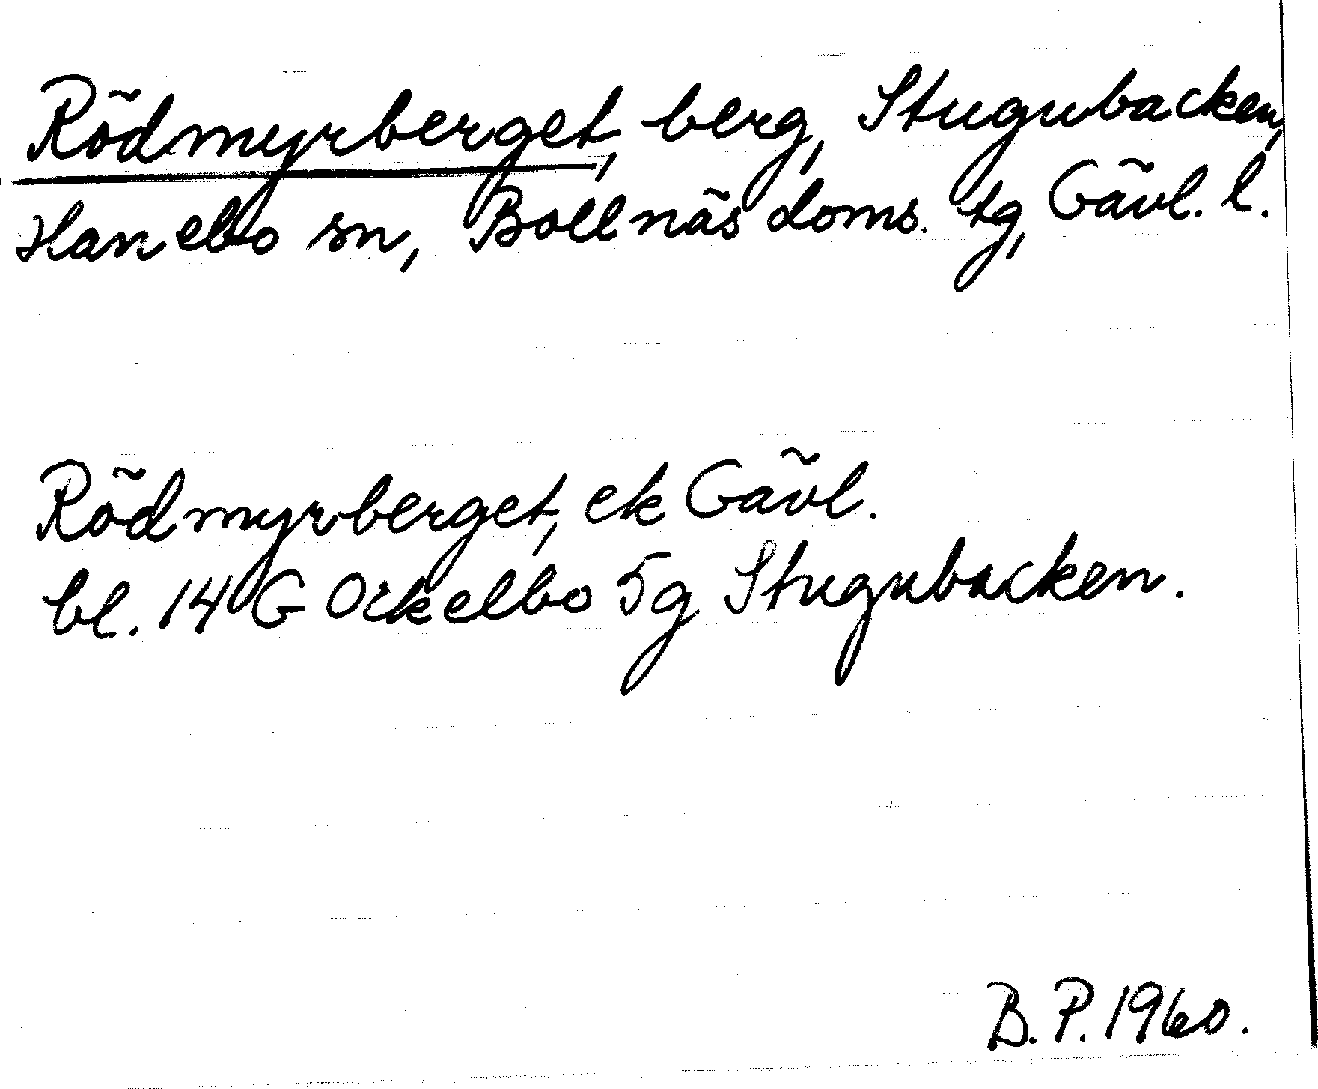 Rödmyrberget, berg, Stugubacken,
Hanebo sn, Bollnäs doms. tg, Gävl. l.
Rödmyrberget, ek Gävl.
bl. 14 G Ockelbo 5g Stugubacken.
B. P. 1960.